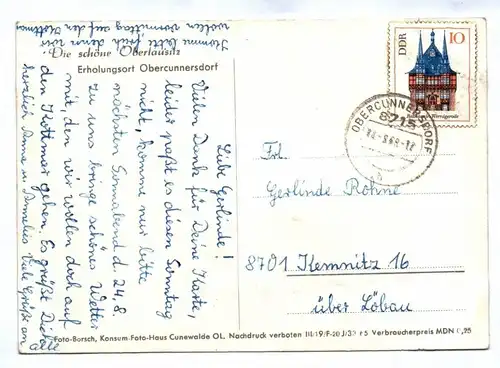 Die schöne Oberlausitz
Erholungsort Obercunnersdorf
Liebe Gerlinde!
Vielen Dank für Deine Karte,
leider paßt es diesen Sonntag
nicht, komme nur bitte
nächsten Sonnabend d. 24.8.
zu uns bringe schönes Wetter
mit, den wir wollen doch auf
den Kottmar gehen. Es grüßt Dich
herzlich Anna u. Annelies Viele Grüße an
alle
Komme bitte früh denn wir
wollen vormittag auf den Kottmar
DDR
10
OBERCUNNERSDORF
8713
b
Frl.
Gerlinde Röhne
8701 Kemnitz 16
über Löbau
Foto-Borsch, Konsum-Foto-Haus Cunewalde OL. Nachdruck verboten III/19/F-20 J/32 65 Verbraucherpreis MDN 0,25